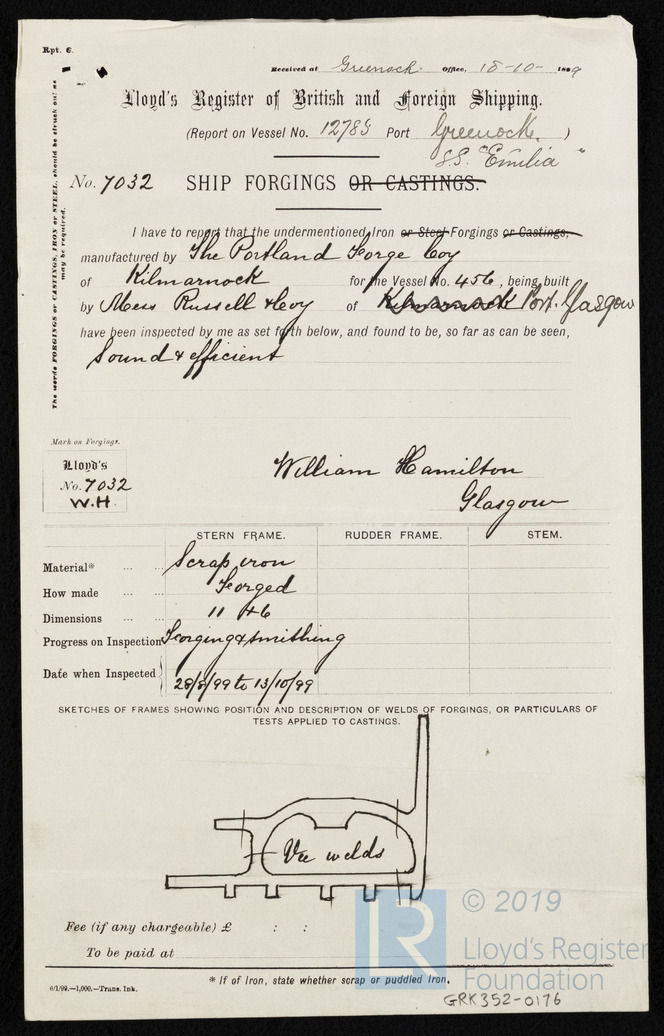 Rpt. 6.
Received at Greenock. Office, 18-10- 1899
Lloyd's Register of British and Foreign Shipping.
(Report on Vessel No. 12783 Port Greenock. )
S.S. "Emilia"
No. 7032 SHIP FORGINGS OR CASTINGS.
The words FORGINGS or CASTINGS, IRON or STEEL, should be struck out as may be required.
I have to report that the undermentioned Iron or Steel Forgings or Castings,
manufactured by The Portland Forge Coy
of Kilmarnock for the Vessel No. 456, being built
by Mess Russell & Coy of Kilmarnock Port. Glasgow
have been inspected by me as set forth below, and found to be, so far as can be seen,
Sound & efficient
Mark on Forgings.
Lloyd's
No. 7032
W.H.
William Hamilton
Glasgow
STERN FRAME. RUDDER FRAME. STEM.
Material* ... ... Scrap iron
How made ... ... Forged
Dimensions ... ... 11 × 6
Progress on Inspection Forging & smithing
Date when Inspected 28/8/99 to 13/10/99
SKETCHES OF FRAMES SHOWING POSITION AND DESCRIPTION OF WELDS OF FORGINGS, OR PARTICULARS OF
TESTS APPLIED TO CASTINGS.
Vee welds
Fee (if any chargeable) £ : :
To be paid at
* If of Iron, state whether scrap or puddled Iron.
6/1/99.—1,000.—Trans. Ink.
GRK352-0176
LR
© 2019
Lloyd's Register
Foundation